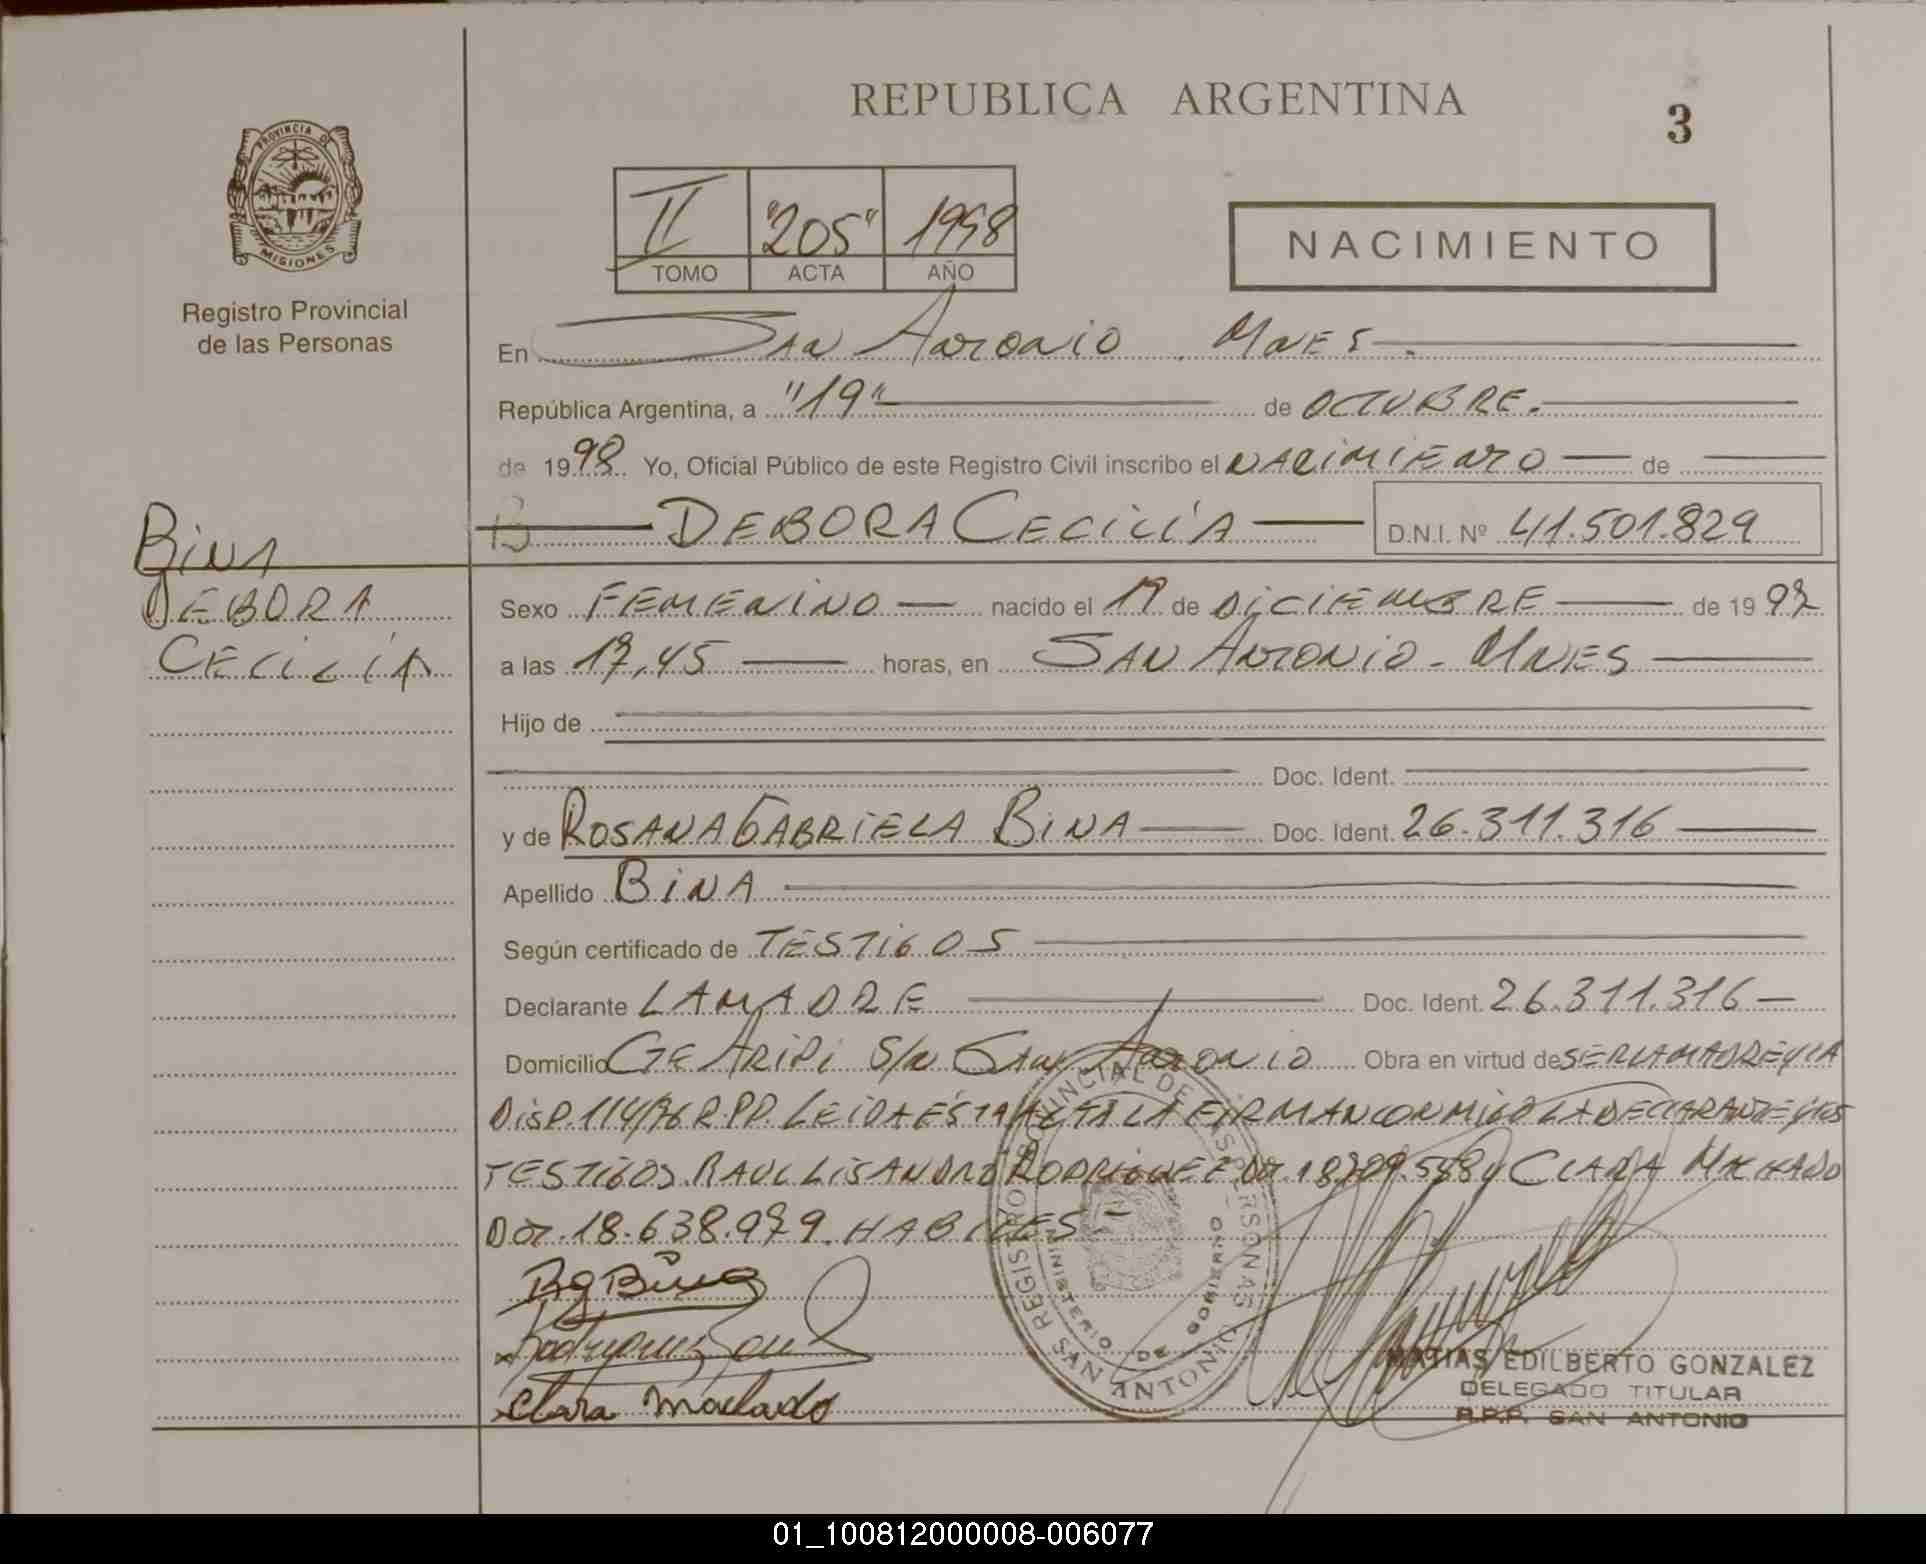 REPUBLICA ARGENTINA
3
PROVINCIA DE
MISIONES
Registro Provincial
de las Personas
II "205" 1998
TOMO ACTA AÑO
NACIMIENTO
En San Antonio . Mnes .
República Argentina, a "19" de OCTUBRE.
de 1998 Yo, Oficial Público de este Registro Civil inscribo el NACIMIENTO de
DEBORA CECILIA D.N.I. Nº 41.501.829
BINA
DEBORA
CECILIA
Sexo FEMENINO nacido el 19 de DICIEMBRE de 1997
a las 17,45 horas, en SAN ANTONIO - MNES
Hijo de
Doc. Ident.
y de ROSANA GABRIELA BINA Doc. Ident. 26.311.316
Apellido BINA
Según certificado de TESTIGOS
Declarante LA MADRE Doc. Ident. 26.311.316
Domicilio S/N San Antonio Obra en virtud de SER LA MADRE Y LA
DISP. 114/96 R.P.P. LEIDA ESTA ACTA LA FIRMAN CONMIGO LA DECLARANTE Y LOS
TESTIGOS RAUL LISANDRO RODRIGUEZ Y CLARA MACHADO
18.638.979 HABILES
RgBina
Rodriguez Raul
Clara Machado
REGISTRO PROVINCIAL DE LAS PERSONAS
MINISTERIO DE GOBIERNO
SAN ANTONIO
MATIAS EDILBERTO GONZALEZ
DELEGADO TITULAR
R.P.P. SAN ANTONIO
01_100812000008-006077